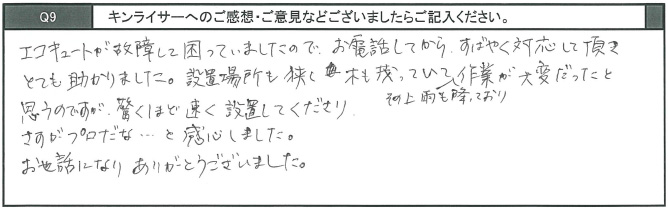 Q9 キンライサーへのご感想・ご意見などございましたらご記入ください。
エコキュートが故障して困っていましたので、お電話してから、すばやく対応して頂き
とても助かりました。設置場所も狭く 木も残っていて、作業が大変だったと
その上雨も降っており
思うのですが、驚くほど速く設置してくださり、
さすがプロだな…と感心しました。
お世話になりありがとうございました。